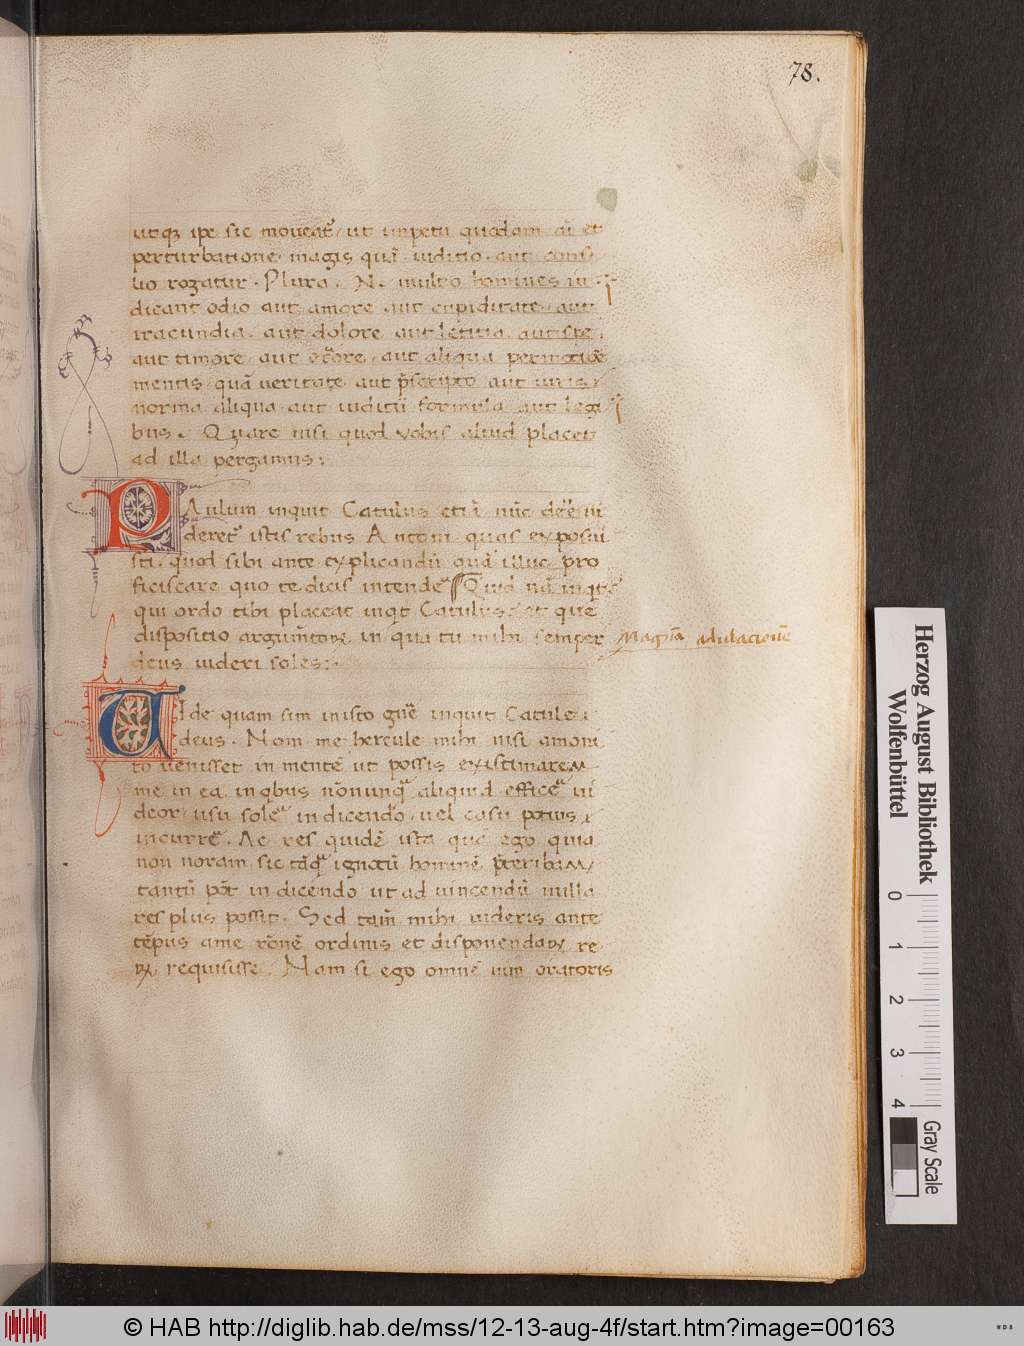 78.
utq; ip̄e sic moveat᷑ ut impetu quodam ai et
perturbatione magis quā iuditio aut consi
lio rogatur. Plura .N. multo homines iu
dicant odio aut amore aut cupiditate aut
iracundia. aut dolore aut letitia aut spe
aut timore aut erore aut aliqua permotiōe
mentis quā veritate aut p̄scripto aut iuris
norma aliqua aut iuditii formula aut legi
bus. Quare nisi quod vobis aliud placet
ad illa pergamus:
PAulum inquit Catulus etiā nūc deēe vi
deret᷑ istis rebus Antoni quas exposui
sti. quod sibi ante explicandū quā illuc pro
ficiscare quo te dicis intendē Quid nā inqt
qui ordo tibi placeat inqt Catulus et que
dispositio argumtoꝝ in qua tu mihi semper
Magnā adulacionē
deus videri soles:
VIde quam sim in isto gnē inquit Catule
deus. Nam me hercule mihi nisi amoni
to venisset in mentē ut possis existimarem
me in ea in qbus nōnunq̄ aliquid efficē vi
deor usu solē in dicendo vel casu potius
incurrē. Ac res quidē ista quē ego quia
non noram sic tāq̄ ignotū hominē p̄teribam
tantū pōt in dicendo ut ad vincendū nulla
res plus possit. Sed tam̄ mihi videris ante
tēpus a me rōnē ordinis et disponendaꝝ re
ꝝ requisisse. Nam si ego omnē vim oratoris
Herzog August Bibliothek
Wolfenbüttel
0 1 2 3 4
Gray Scale
© HAB http://diglib.hab.de/mss/12-13-aug-4f/start.htm?image=00163